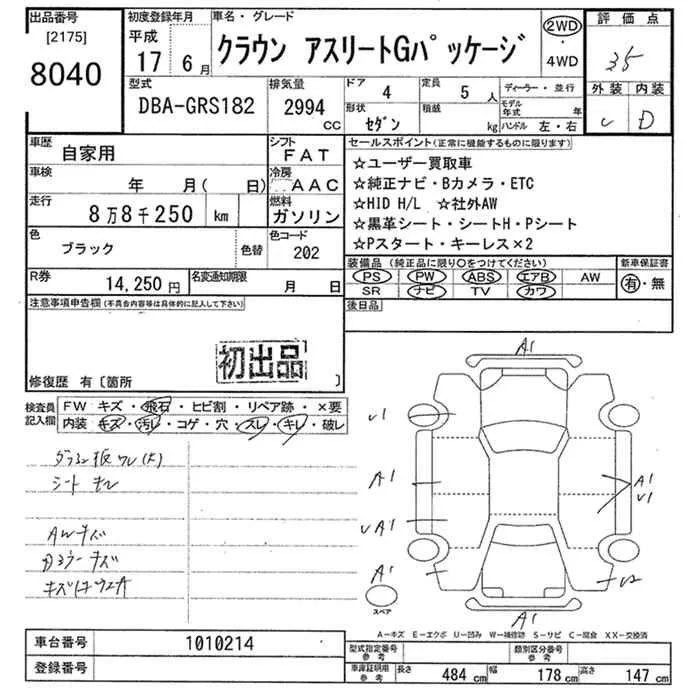 出品番号
[2175]
8040
初度登録年月
平成
17 6月
車名・グレード
クラウン アスリートGパッケージ
2WD
・
4WD
評価点
35
外装 内装
C D
型式
DBA-GRS182
排気量
2994 CC
ドア
4
定員
5 人
形状
セダン
積載
kg
ディーラー・並行
モデル年式 年
ハンドル 左・右
車歴
自家用
シフト
FAT
車検
年 月( 日)
冷房
AAC
走行
8万8千250 km
燃料
ガソリン
色
ブラック
色替
色コード
202
R券
14,250円
名変通知期限
月 日
セールスポイント(正常に機能するものに限ります)
☆ユーザー買取車
☆純正ナビ・Bカメラ・ETC
☆HID H/L ☆社外AW
☆黒革シート・シートH・Pシート
☆Pスタート・キーレス×2
装備品(純正品に限り○をつけてください)
PS PW ABS エアB AW
SR ナビ TV カワ
新車保証書
有・無
後日品
注意事項申告欄(不具合内容等は具体的に記入して下さい)
初出品
修復歴 有〔箇所 〕
検査員記入欄
FW キズ・飛石・ヒビ割・リペア跡・×要
内装 キズ・汚レ・コゲ・穴・スレ・キレ・破レ
シート キレ
AWキズ
A1
U1
A1
A1
U1
A1
A1
A1
スペア
A-キズ E-エクボ U-凹み W-補修跡 S-サビ C-腐食 XX-交換済
車台番号
1010214
登録番号
型式指定番号 参考
類別区分番号 参考
車庫証明用 参考
長さ 484 cm
幅 178 cm
高さ 147 cm